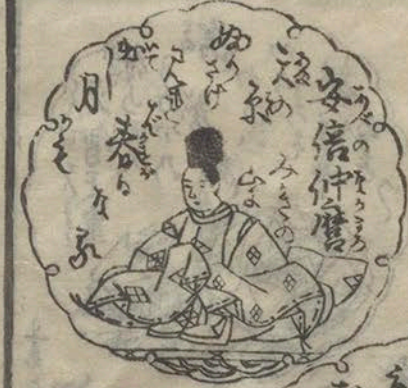 安倍仲麿
天の
原
ふりさけ
春日
なる
みかさの
山に
いてし
月
かも